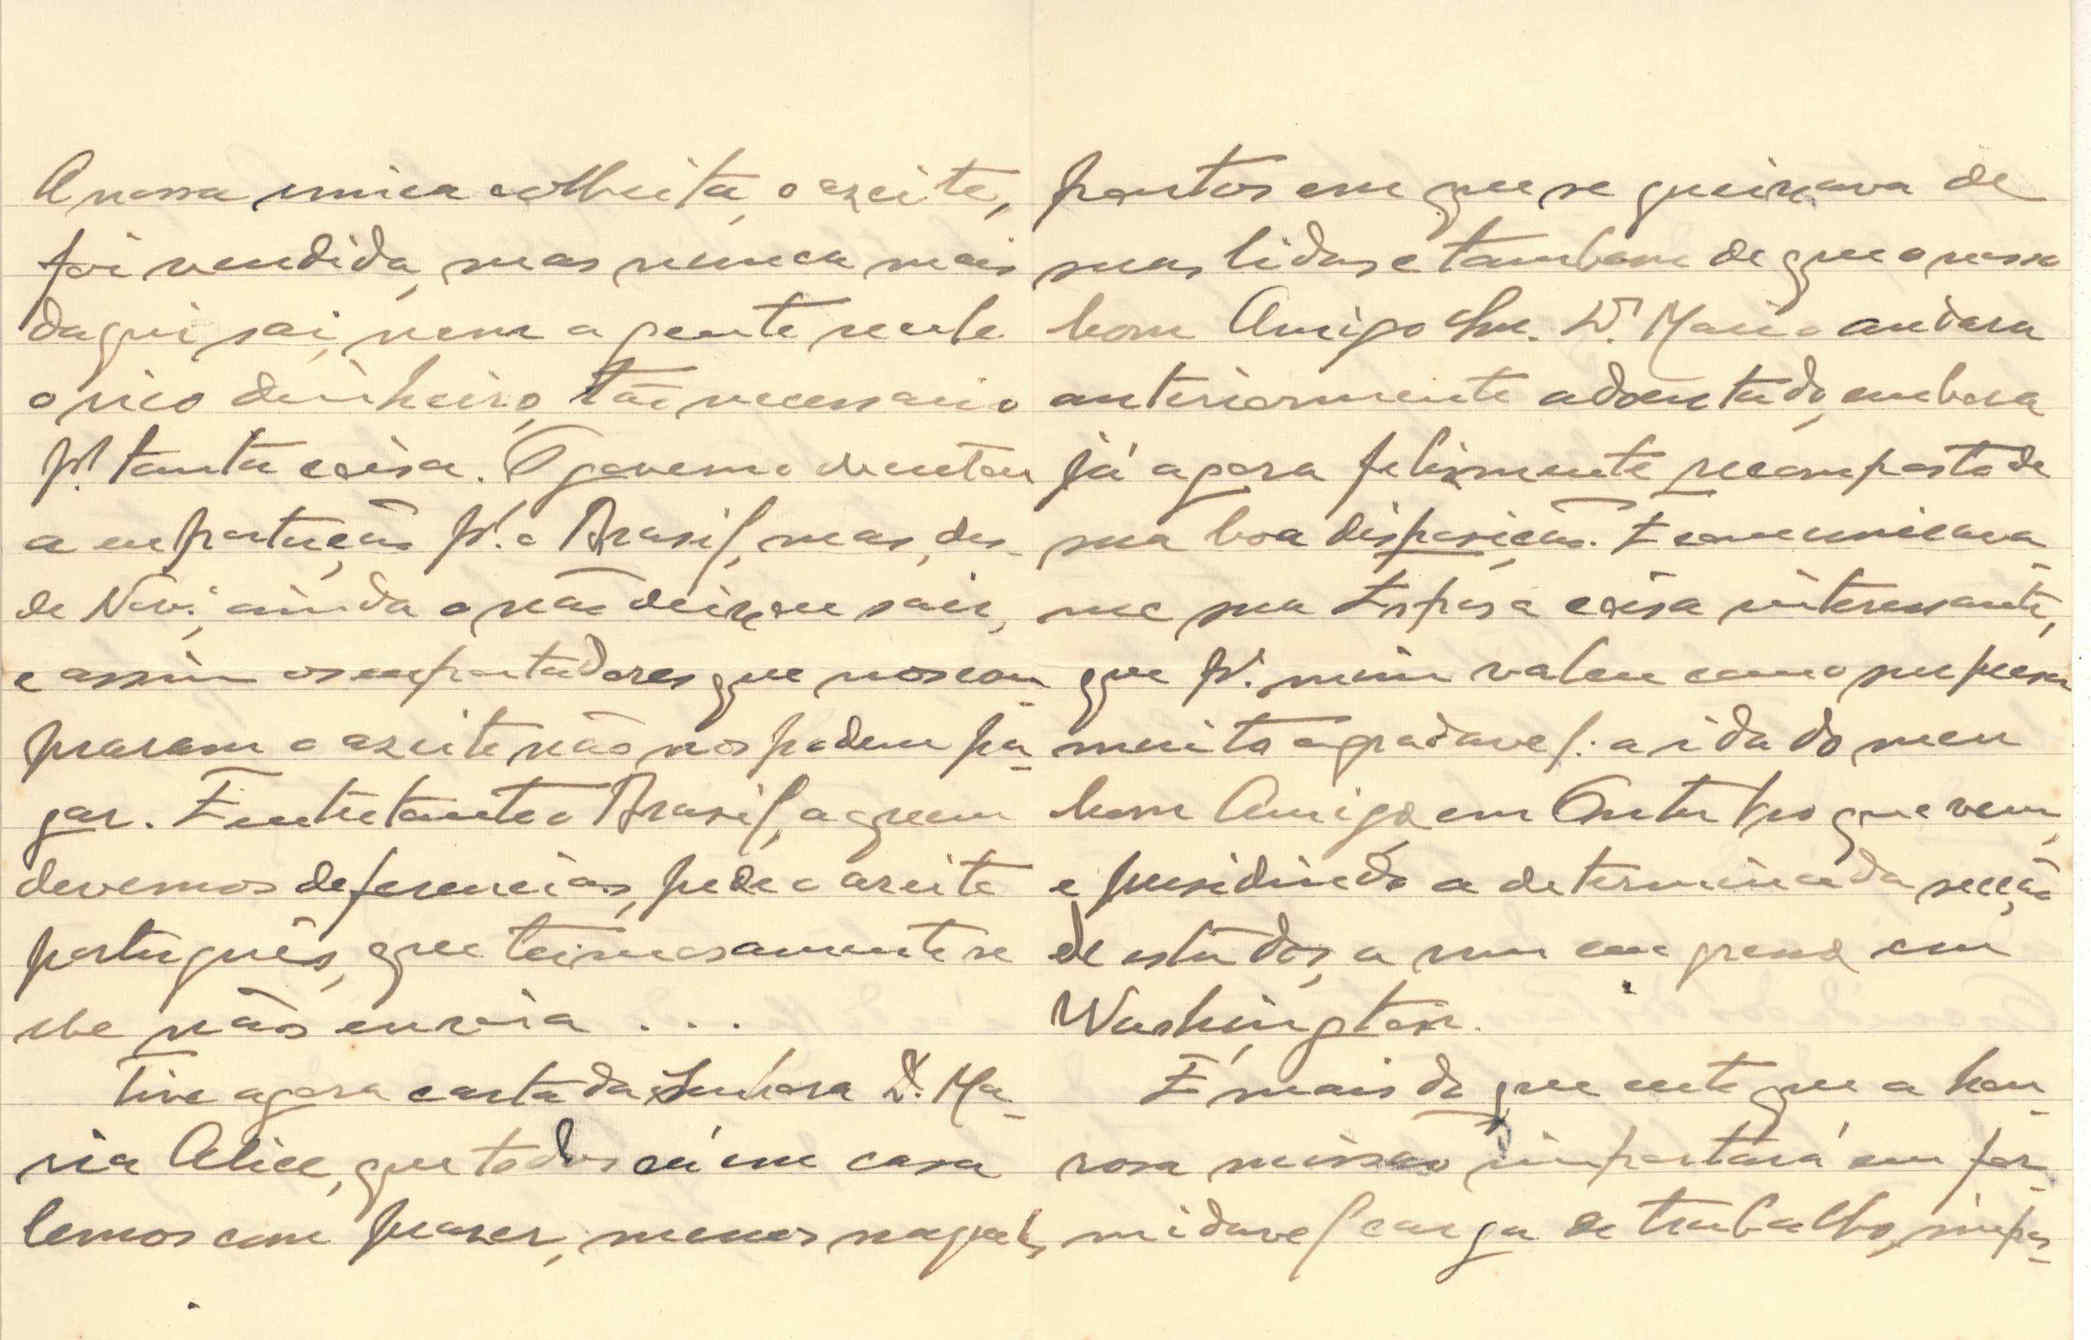 A nossa unica colheita, o azeite,
foi vendida, mas nunca mais
daqui sai, nem a gente recebe
o rico dinheiro, tão necessario
pª. tanta coisa. O governo decretou
a exportação pª. o Brasil, mas, des-
de Novº., ainda o não deixou sair,
e assim os exportadores que nos com-
praram o azeite não nos podem pa-
gar. Entretanto o Brasil, a quem
devemos deferencias, pede o azeite
português, que teimosamente se
lhe não envia ...
Tive agora carta da Senhora D. Ma-
ria Alice, que todos cá em casa
lemos com prazer, menos naqueles
pontos em que se queixava de
suas lidas e tambem de que o nosso
bom Amigo Snr. Dr. Mario andara
anteriormente adoentado, embora
já agora felizmente recomposto de
sua boa disposição. E comunicava-
me sua Esposa coisa interessante,
que pª. mim valeu como surpresa
muito agradavel: a ida do meu
bom Amigo, em Outubro que vem,
e presidindo a determinada secção
de estudos, a um congresso em
Washington.
É mais do que certo que a hon-
rosa missão importará em for-
midavel carga de trabalho, impos-